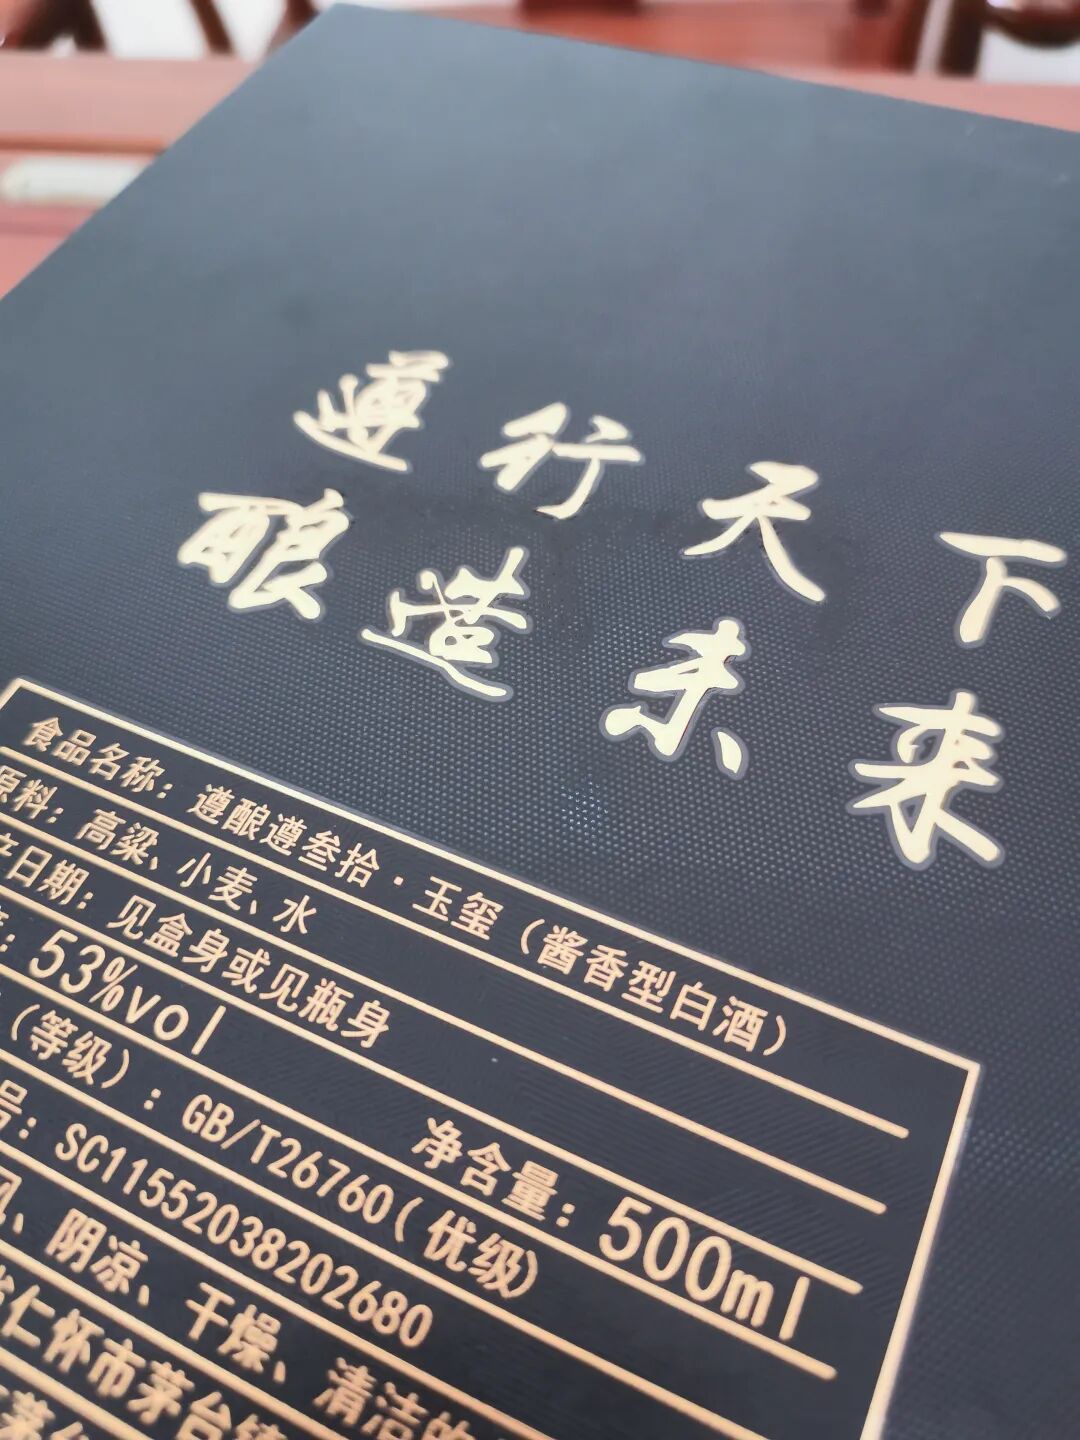 遵行天下
酿造未来
食品名称：遵酿遵叁拾·玉玺（酱香型白酒）
原料：高粱、小麦、水
产日期：见盒身或见瓶身
53%vol 净含量：500ml
（等级）：GB/T26760（优级）
号：SC11552038202680
风、阴凉、干燥、清洁的
省仁怀市茅台镇